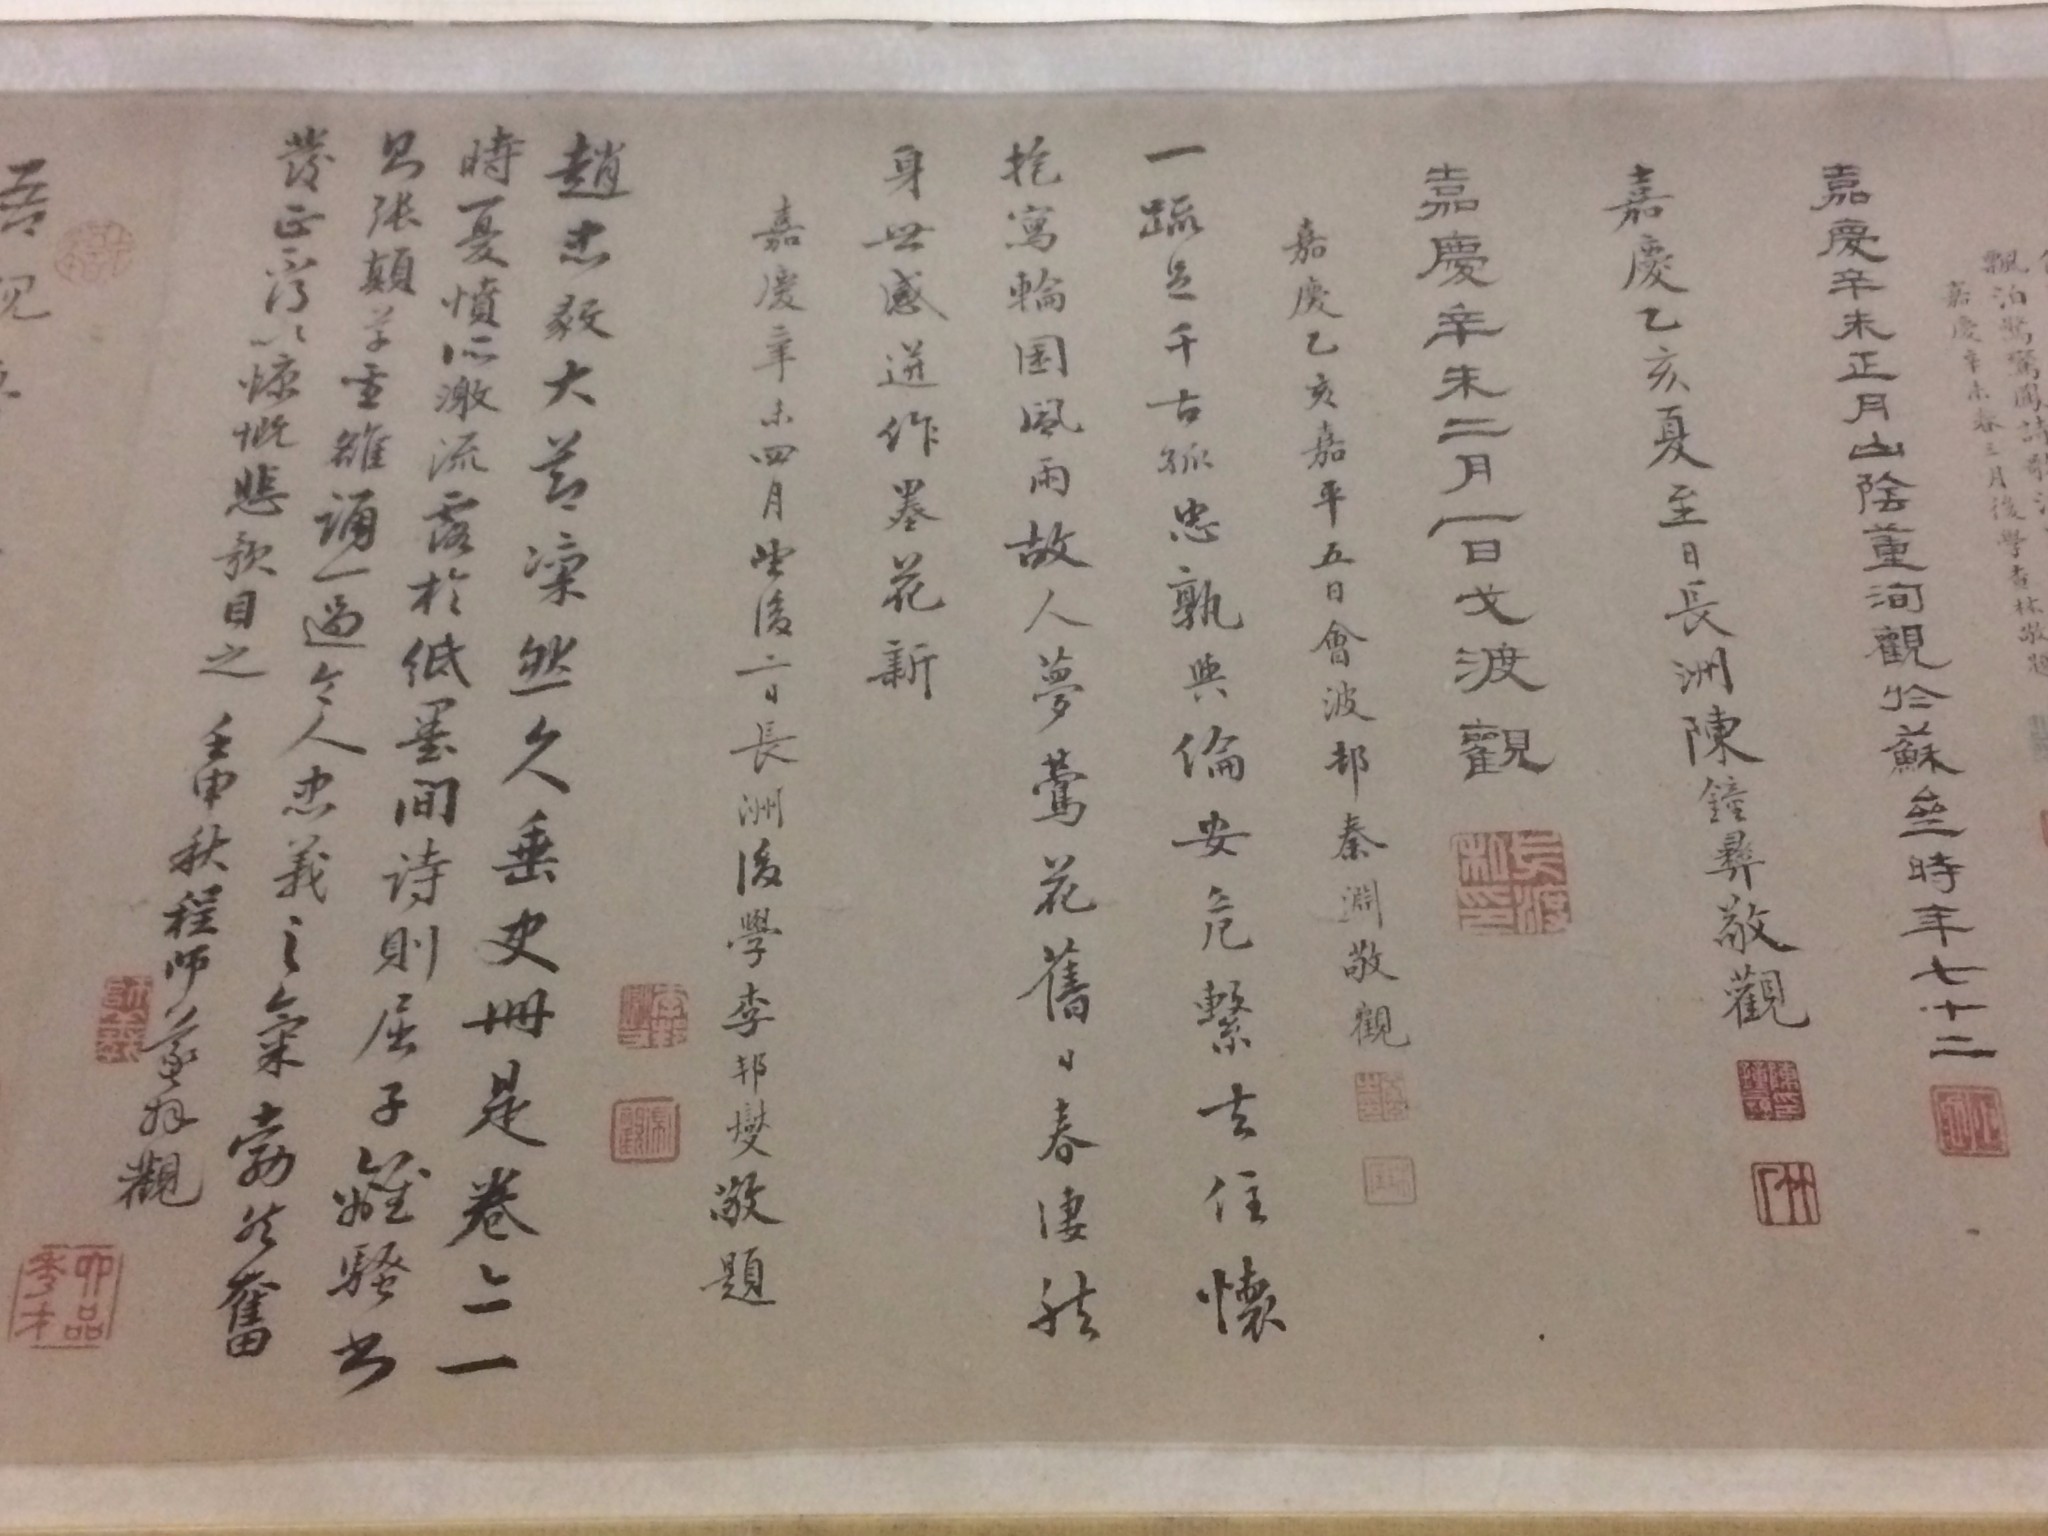 飄泊鸞驚聞詩
嘉慶辛未春三月後學查林敬題
嘉慶辛未正月山陰董洵觀於蘇臺時年七十二
嘉慶乙亥夏至日長洲陳鐘彝敬觀
嘉慶辛未二月一日戈渡觀
嘉慶乙亥嘉平五日會波邨秦淵敬觀
一疏足千古孤忠孰與倫安危繫去住懷
抱寫輪囷風雨故人夢鶯花舊日春淒然
身世感遊作墨花新
嘉慶辛未四月望後二日長洲後學李邦燮敬題
趙忠毅大節凜然久垂史冊是卷亦一
時憂憤所激流露於紙墨間詩則屈子離騷書
則張顛草聖雖誦一過令人忠義之氣勃然奮
發正不得以慷慨悲歌目之 壬申秋程師益拜觀